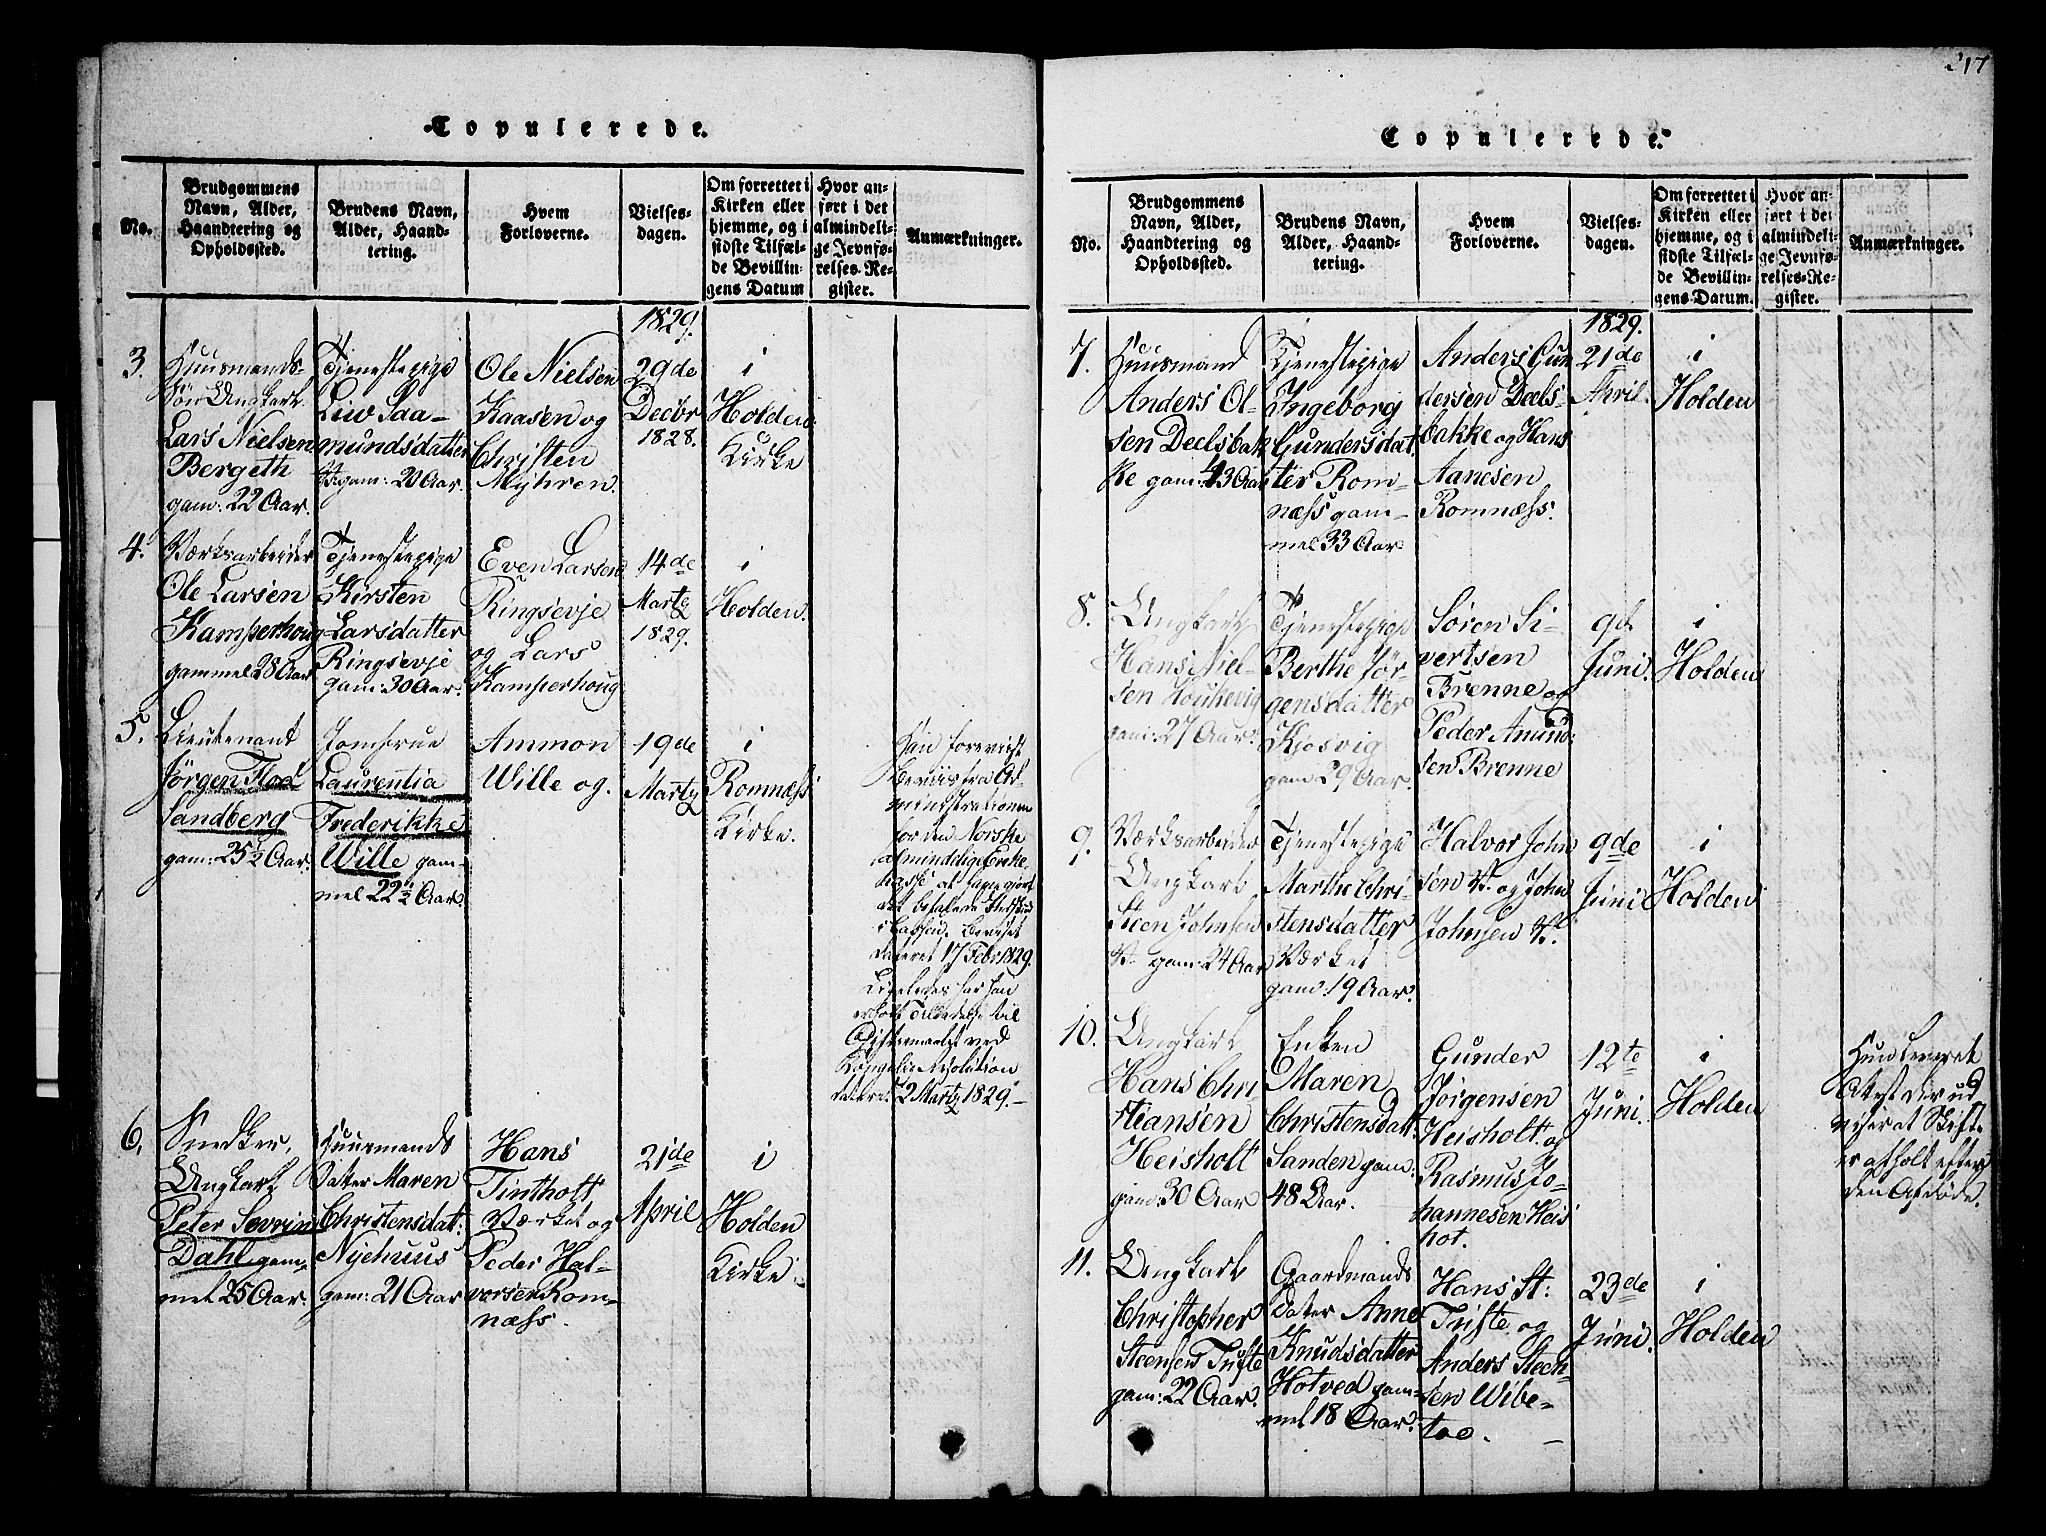 217
Copulerede.
No.
Brudgommens
Navn, Alder,
Haandtering og
Opholdssted.
Brudens Navn,
Alder, Haand-
tering.
Hvem
Forloverne.
Vielses-
dagen.
Om forrettet i
Kirken eller
hjemme, og i
sidste Tilfæl-
de Bevillin-
gens Datum
Hvor an-
ført i det
almindeli-
ge Jevnfø-
relses-Re-
gister.
Anmærkninger.
1829.
3.
Huusmands-
Søn Ungkarl
Lars Nielsen
Bergeth
gam: 22 Aar.
Tjenestepige
Liv Saa-
mundsdatter
gam: 20 Aar.
Ole Nielsen
Kaasen og
Christen
Myhren.
29de
Decbr
1828.
i
Holdens
Kirke
4.
Værksarbeider
Ole Larsen
Kamperhoug
gammel 28 Aar
Tjenestepige
Kirsten
Larsdatter
Ringsevje
gam: 30 Aar.
Even Larsen
Ringsevje
og Lars
Kamperhoug
14de
Martz
1829.
i
Holden.
5.
Lieutenant
Jørgen Flod
Sandberg
gam: 25½ Aar.
Jomfrue
Laurentia
Frederikke
Wille gam-
mel 22½ Aar.
Ammon
Wille og.
19de
Martz
i
Romnæss
Kirke.
Han foreviist
Beviis fra Ad-
ministrationen
for den Norske
almindelige Enke
kasse at have gjort
det befalede Indskud
i Cassen. Beviset
dateret 17 Febr 1829.
Ligeledes har han
erholdt Tilladelse til
Giftermaalet ved
Kongelig Resolution
dateret 2 Martz 1829.-
6.
Snedker,
Ungkarl
Peter Sevrin
Dahl gam-
mel 25 Aar.
Huusmands
Datter Maren
Christensdat:
Nyehuus
gam: 21 Aar
Hans
Tinthoft
Værket og
Peder Hal-
vorsen Rom-
næss.
21de
April
i
Holden
Kirke.
Copulerede.
No.
Brudgommens
Navn, Alder,
Haandtering og
Opholdssted.
Brudens Navn,
Alder, Haand-
tering.
Hvem
Forloverne.
Vielses-
dagen.
Om forrettet i
Kirken eller
hjemme, og i
sidste Tilfæl-
de Bevillin-
gens Datum.
Hvor an-
ført i det
almindeli-
ge Jevnfø-
relses-Re-
gister.
Anmærkninger.
1829.
7.
Huusmand
Anders Ol-
sen Deelsbak
ke gam: 43 Aar
Tjenestepige
Ingeborg
Gundersdat
ter Rom-
næss gam-
mel 33 Aar
Anders Gun
dersen Deels-
bakke og Hans
Aanesen
Romnæss.
21de
April.
i
Holden
8.
Ungkarl
Hans Niel-
sen
gam: 27 Aar.
Tjenestepige
Berthe Jør-
gensdatter
Kjosvig
gam 29 Aar.
Søren Si-
vertsen
Brenne og
Peder Amund
sen Brenne
9d.
Juni.
i
Holden
9.
Værksarbeider
Ungkarl
Steen Johnsen
V. gam: 24 Aar
Tjenestepige
Marthe Chri-
stensdatter
Værket
gam: 19 Aar.
Halvor John
sen V. og John
Johnsen V.
9de
Juni
i
Holden
10.
Ungkarl
Hans Chri
stiansen
Heisholt
gam: 30 Aar
Enken
Maren
Christensdatt.
Sanden gam:
48 Aar.
Gunder
Jørgensen
Heisholt og
Rasmus Jo-
hannesen Heis
hot.
12te
Juni.
i
Holden
Hun leveret
Atest der ud
viser at Skifte
er afholt efter
den Afdøde.
11.
Ungkarl
Christopher
Steensen Tufte
gam: 22 Aar.
Gaardmands
Datter Anne
Knudsdatter
Hotved gam-
mel 18 Aar.
Hans St:
Tufte og
Anders Steen
sen Wibe-
toe.
23de
Juni.
i
Holden